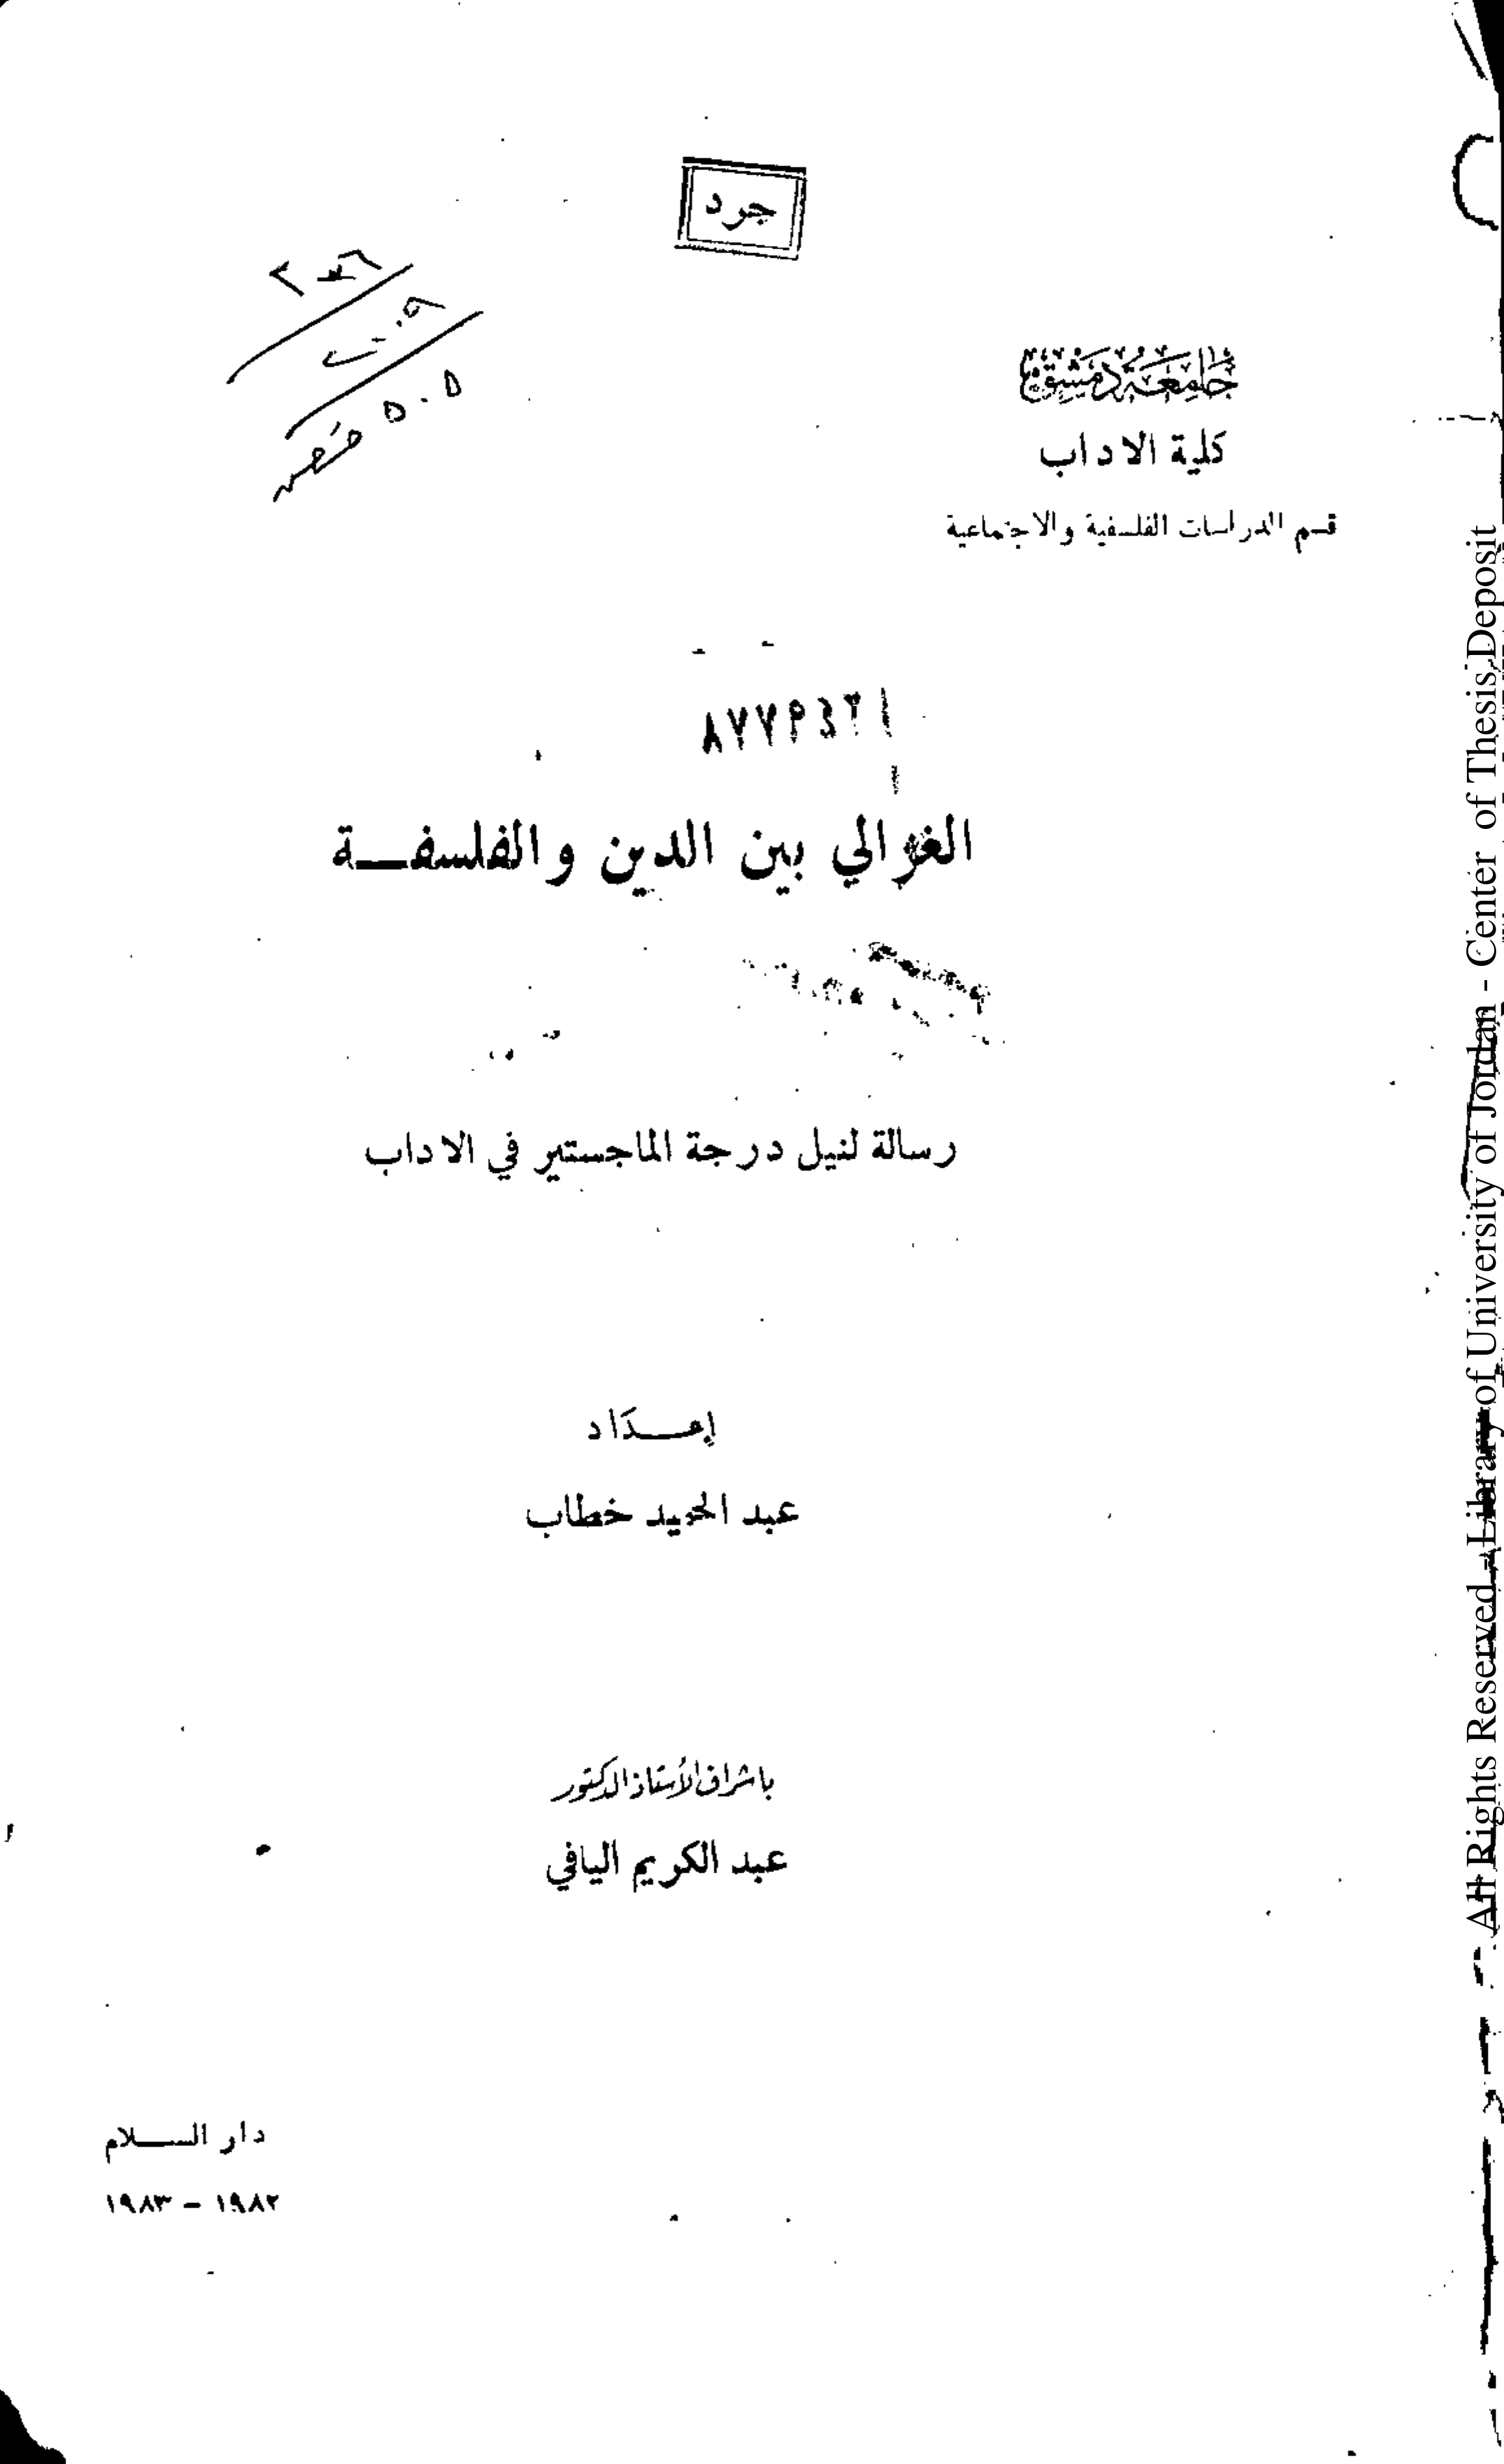 جرد
جامعة دمشق
كلية الاداب
قسم الدراسات الفلسفية والاجتماعية
الغزالي بين الدين والفلسفـــة
رسالة لنيل درجة الماجستير في الاداب
إعـــداد
عبد الحميد خطاب
باشراف الأستاذ الدكتور
عبد الكريم اليافي
دار الســـلام
١٩٨٢ – ١٩٨٣
All Rights Reserved - Library of University of Jordan - Center of Thesis Deposit